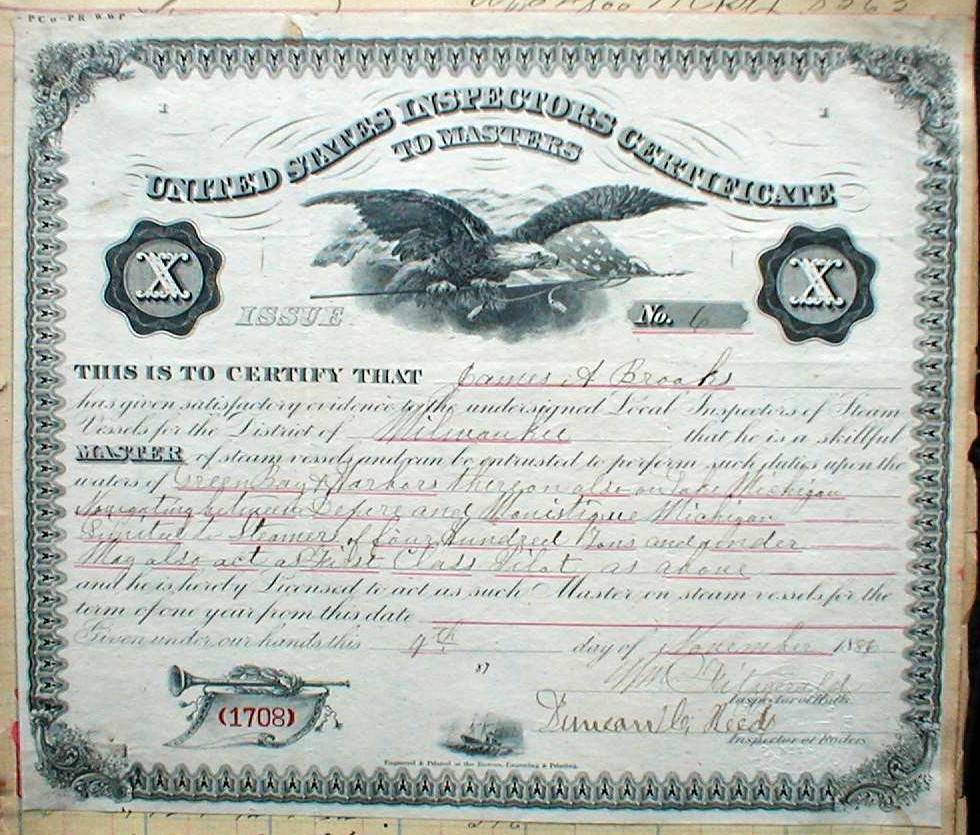 UNITED STATES INSPECTORS CERTIFICATE
TO MASTERS
1
1
X
X
ISSUE
No. 6
THIS IS TO CERTIFY THAT James A Brooks
has given satisfactory evidence to the undersigned Local Inspectors of Steam
Vessels for the District of Milwaukee that he is a skillful
MASTER of steam vessels and can be entrusted to perform such duties upon the
waters of Green Bay & Harbors thereon also on Lake Michigan
Navigating between Depere and Manistique Michigan
Limited to Steamers of four Hundred Tons and under
May also act as First Class Pilot as above
and he is hereby Licensed to act as such Master on steam vessels for the
term of one year from this date
Given under our hands this 9th day of November 1886
87
Wm Fitzgerald
Inspector of Hulls.
Duncan C. Reed
Inspector of Boilers
(1708)
Engraved & Printed at the Bureau, Engraving & Printing.